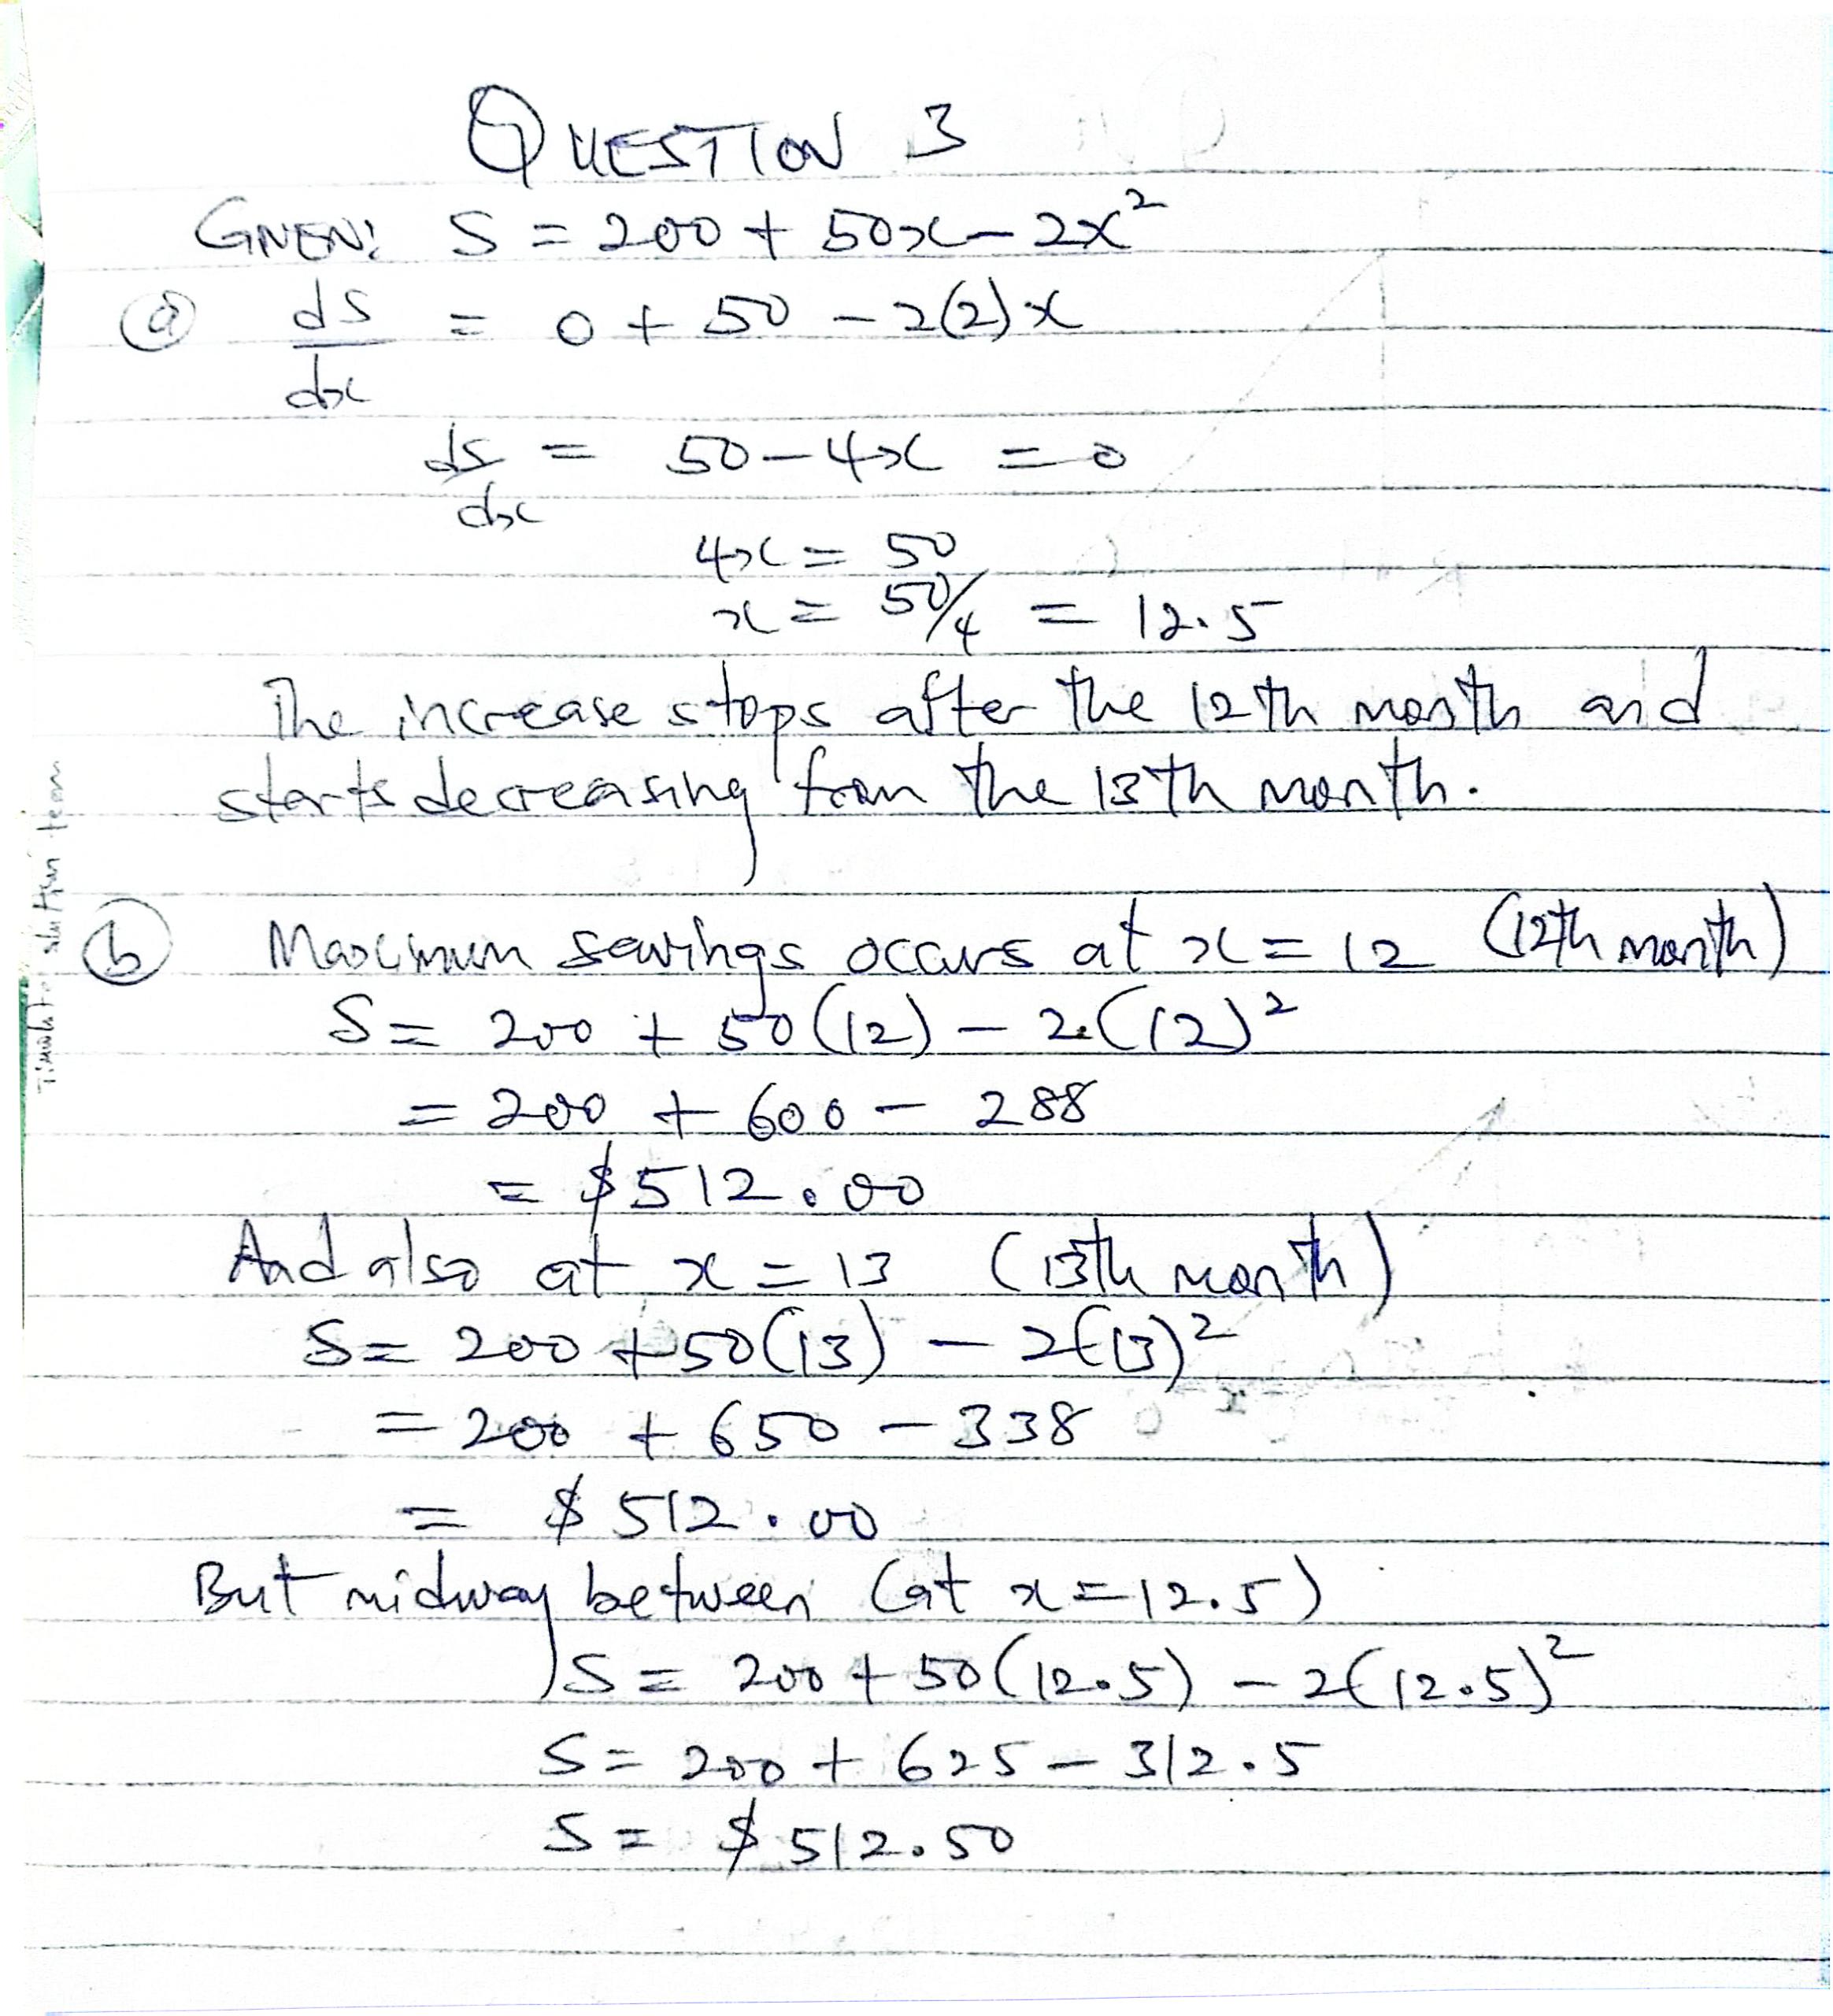 QUESTION 3
GIVEN: S = 200 + 50x - 2x²
(a) ds/dx = 0 + 50 - 2(2)x
ds/dx = 50 - 4x = 0
4x = 50
x = 50/4 = 12.5
The increase stops after the 12th month and
starts decreasing from the 13th month.
(b) Maximum savings occurs at x = 12 (12th month)
S = 200 + 50(12) - 2(12)²
= 200 + 600 - 288
= $512.00
And also at x = 13 (13th month)
S = 200 + 50(13) - 2(13)²
= 200 + 650 - 338
= $512.00
But midway between (at x = 12.5)
S = 200 + 50(12.5) - 2(12.5)²
S = 200 + 625 - 312.5
S = $512.50